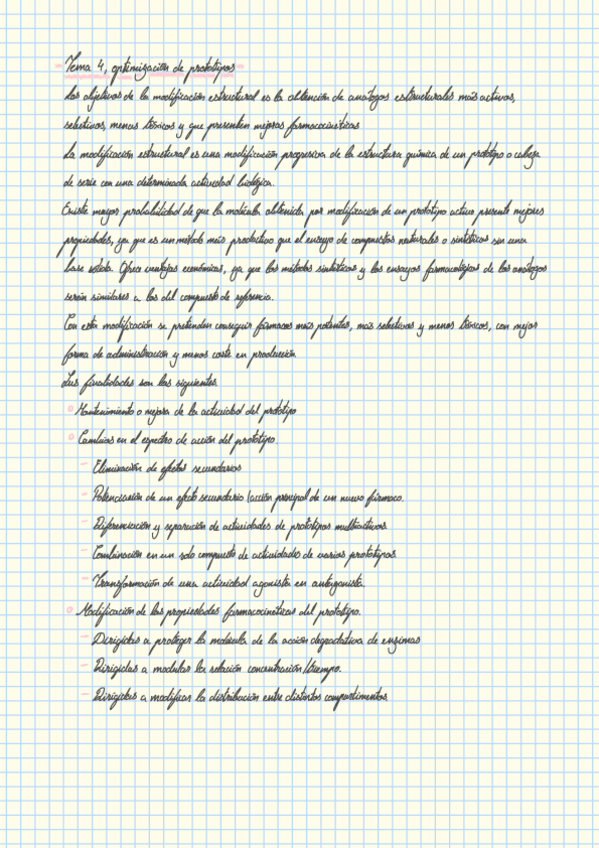 - Tema 4, optimización de prototipos -
Los objetivos de la modificación estructural es la obtención de análogos estructurales más activos,
selectivos, menos tóxicos y que presenten mejoras farmacocinéticas
La modificación estructural es una modificación progresiva de la estructura química de un prototipo o cabeza
de serie con una determinada actividad biológica.
Existe mayor probabilidad de que la molécula obtenida por modificación de un prototipo activo presente mejores
propiedades, ya que es un método más productivo que el ensayo de compuestos naturales o sintéticos sin una
base sólida. Ofrece ventajas económicas, ya que los métodos sintéticos y los ensayos farmacológicos de los análogos
serán similares a los del compuesto de referencia.
Con esta modificación se pretenden conseguir fármacos más potentes, más selectivos y menos tóxicos, con mejor
forma de administración y menos coste en producción.
Las finalidades son las siguientes.
o Mantenimiento o mejora de la actividad del prototipo
o Cambios en el espectro de acción del prototipo
- Eliminación de efectos secundarios
- Potenciación de un efecto secundario (acción principal de un nuevo fármaco.
- Diferenciación y separación de actividades de prototipos multiactivos.
- Combinación en un solo compuesto de actividades de varios prototipos.
- Transformación de una actividad agonista en antagonista.
o Modificación de las propiedades farmacocinéticas del prototipo.
- Dirigidas a proteger la molécula de la acción degradativa de enzimas
- Dirigidas a modular la relación concentración/tiempo.
- Dirigidas a modificar la distribución entre distintos compartimentos